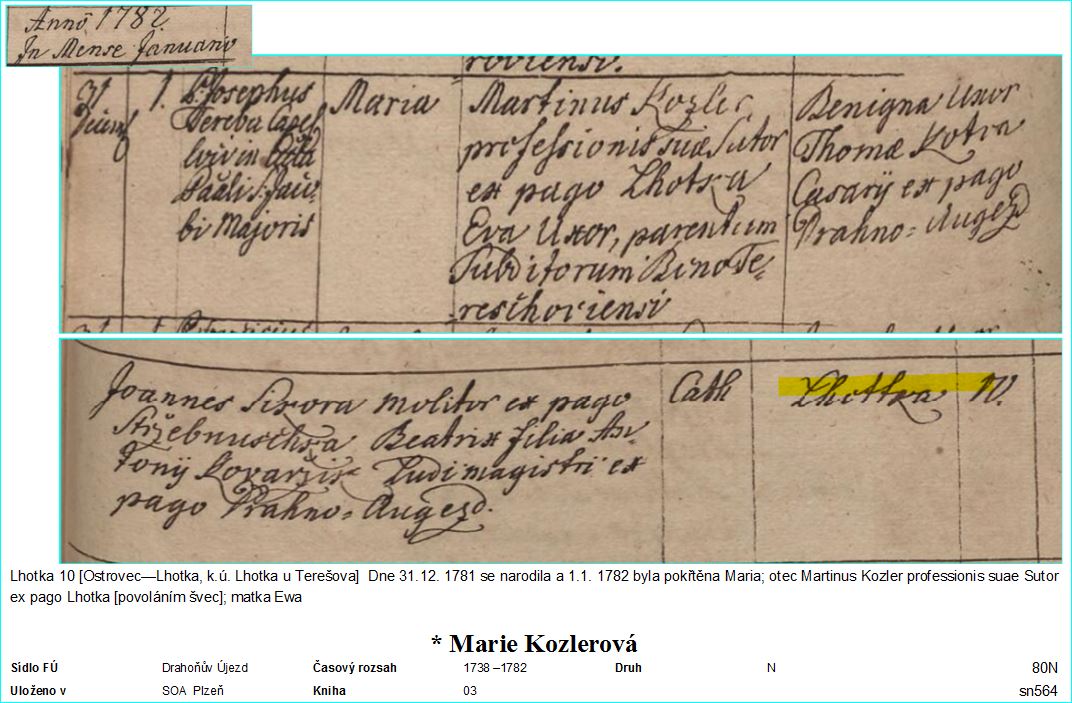 Anno 1782.
In Mense Januario
roviensi.
31 1. P. Josephus Maria Martinus Kozler Benigna Uxor
Decemb Dereba Capel professionis suae Sutor Thomae Kotra
ex pago Lhotka Casarÿ ex pago
bi Majoris Eva Uxor, parentum Prahno=Augezd
Subditorum Bino Te=
reschoviensi
Joannes Sikora molitor ex pago Cath Lhotka N.
Beatrix filia An=
tonÿ Kovarzik Ludimagistri ex
pago Prahno=Augezd.
Lhotka 10 [Ostrovec—Lhotka, k.ú. Lhotka u Terešova] Dne 31.12. 1781 se narodila a 1.1. 1782 byla pokřtěna Maria; otec Martinus Kozler professionis suae Sutor
ex pago Lhotka [povoláním švec]; matka Ewa
* Marie Kozlerová
Sídlo FÚ Drahoňův Újezd Časový rozsah 1738 –1782 Druh N 80N
Uloženo v SOA Plzeň Kniha 03 sn564